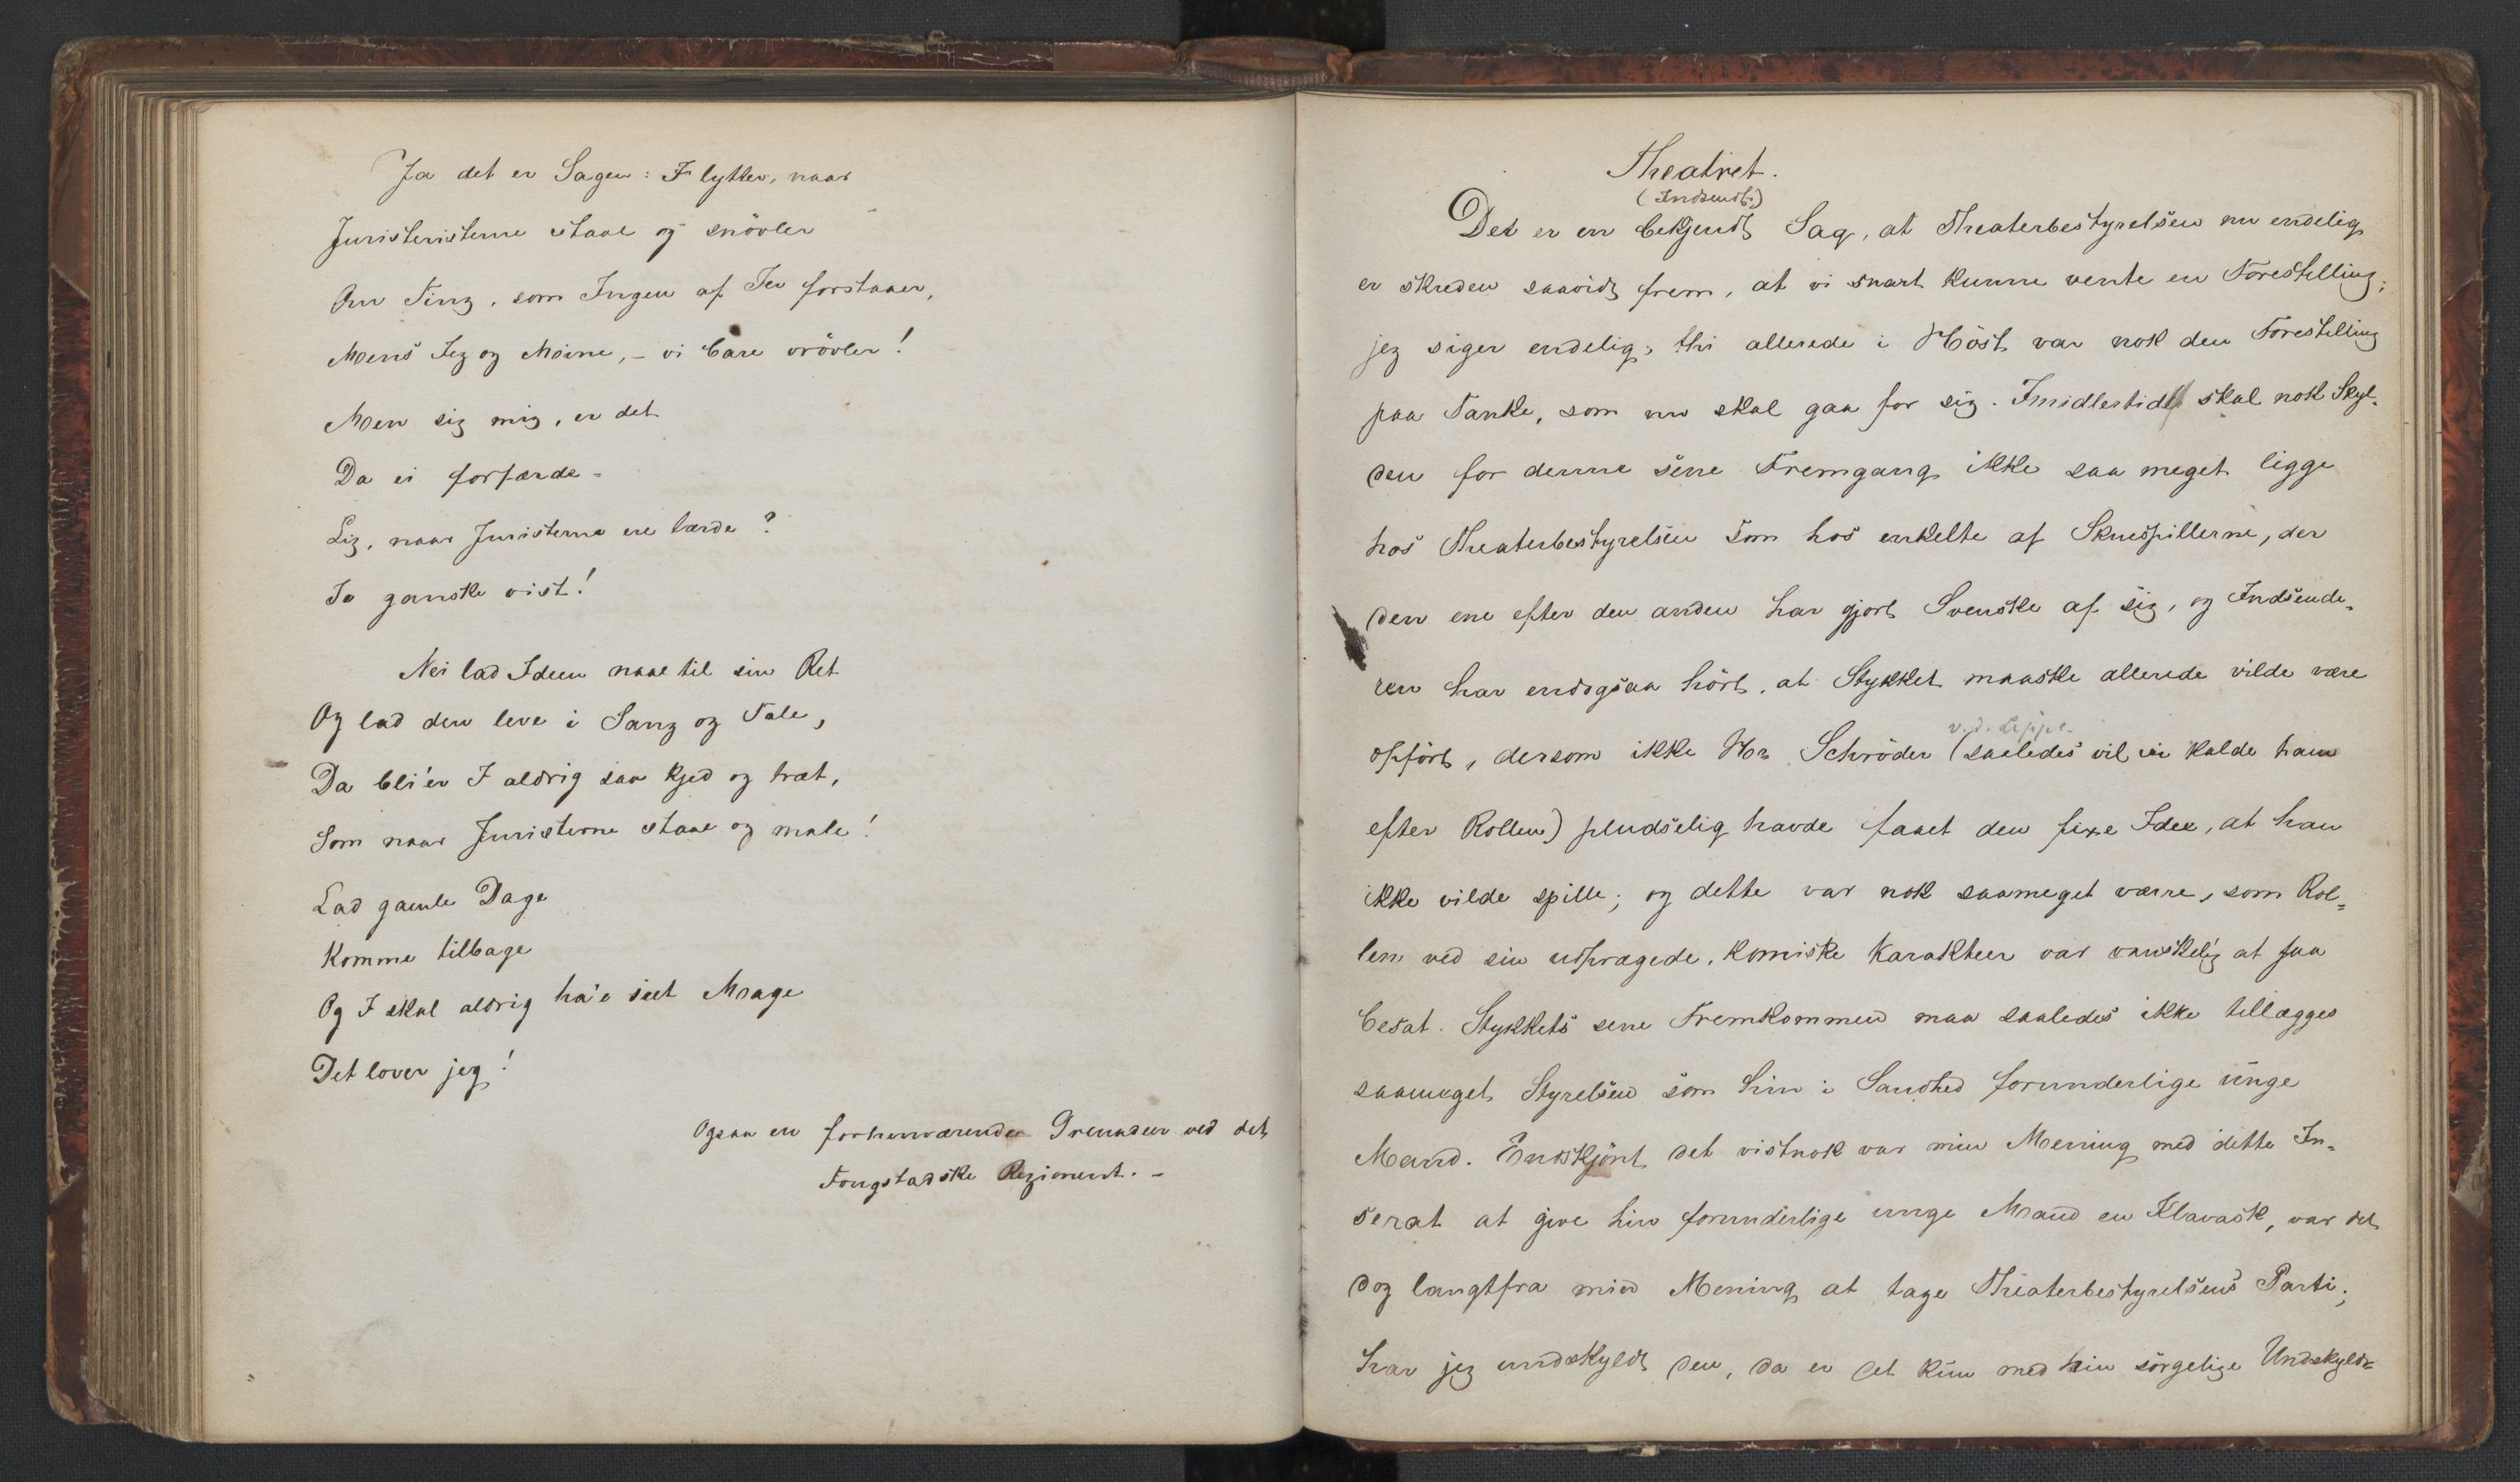 Ja det er Sagen: I lytter, naar
Juristeristerne staae og snövler
Om Ting, som Ingen af Jer forstaaer,
Mens Jeg og Moine, - vi bare vrövler!
Men sig mig, er det
Da ei forfærde-
Lig, naar Juristerne ere lærde?
Jo ganske vist!
Nei lad Ideen naae til sin Ret
Og lad den leve i Sang og Tale,
Da bli'er I aldrig saa kjed og træt,
Som naar Juristerne staae og male!
Lad gamle Dage
Komme tilbage
Og I skal aldrig ha'e seet Mage
Det lover jeg!
Ogsaa en forhenværende Grenadeer ved det
Tongstadske Regiment. -
Theatret.
(Indsendt)
Det er en bekjendt Sag, at Theaterbestyrelsen nu endelig
er skreden saavidt frem, at vi snart kunne vente en Forestilling;
jeg siger endelig; thi allerede i Höst var nok den Forestilling
paa Tanke, som nu skal gaa for sig. Imidlertid skal nok Skyl-
den for denne sene Fremgang ikke saa meget ligge
hos Theaterbestyrelsen som hos enkelte af Skuespillerne, der
den ene efter den anden har gjort Svenske af sig, og Indsende-
ren har endogsaa hört, at Stykket maaske allerede vilde være
v. d. Lippe
opfört, dersom ikke Hr Schröder (saaledes vil vi kalde ham
efter Rollen) pludselig havde faaet den fixe Idee, at han
ikke vilde spille; og dette var nok saameget værre, som Rol-
len ved sin udprægede, komiske Karakteer var vanskelig at faa
besat. Stykkets sene Fremkommen maa saaledes ikke tillægges
saameget Styrelsen som hin i Sandhed forunderlige unge
Mand. Endskjönt det vistnok var min Mening med dette In-
serat at give hin forunderlige unge Mand en Klavask, var det
dog langtfra min Mening at tage Theaterbestyrelsens Parti;
har jeg undskyldt den, da er det kun med hin sörgelige Undskyld-